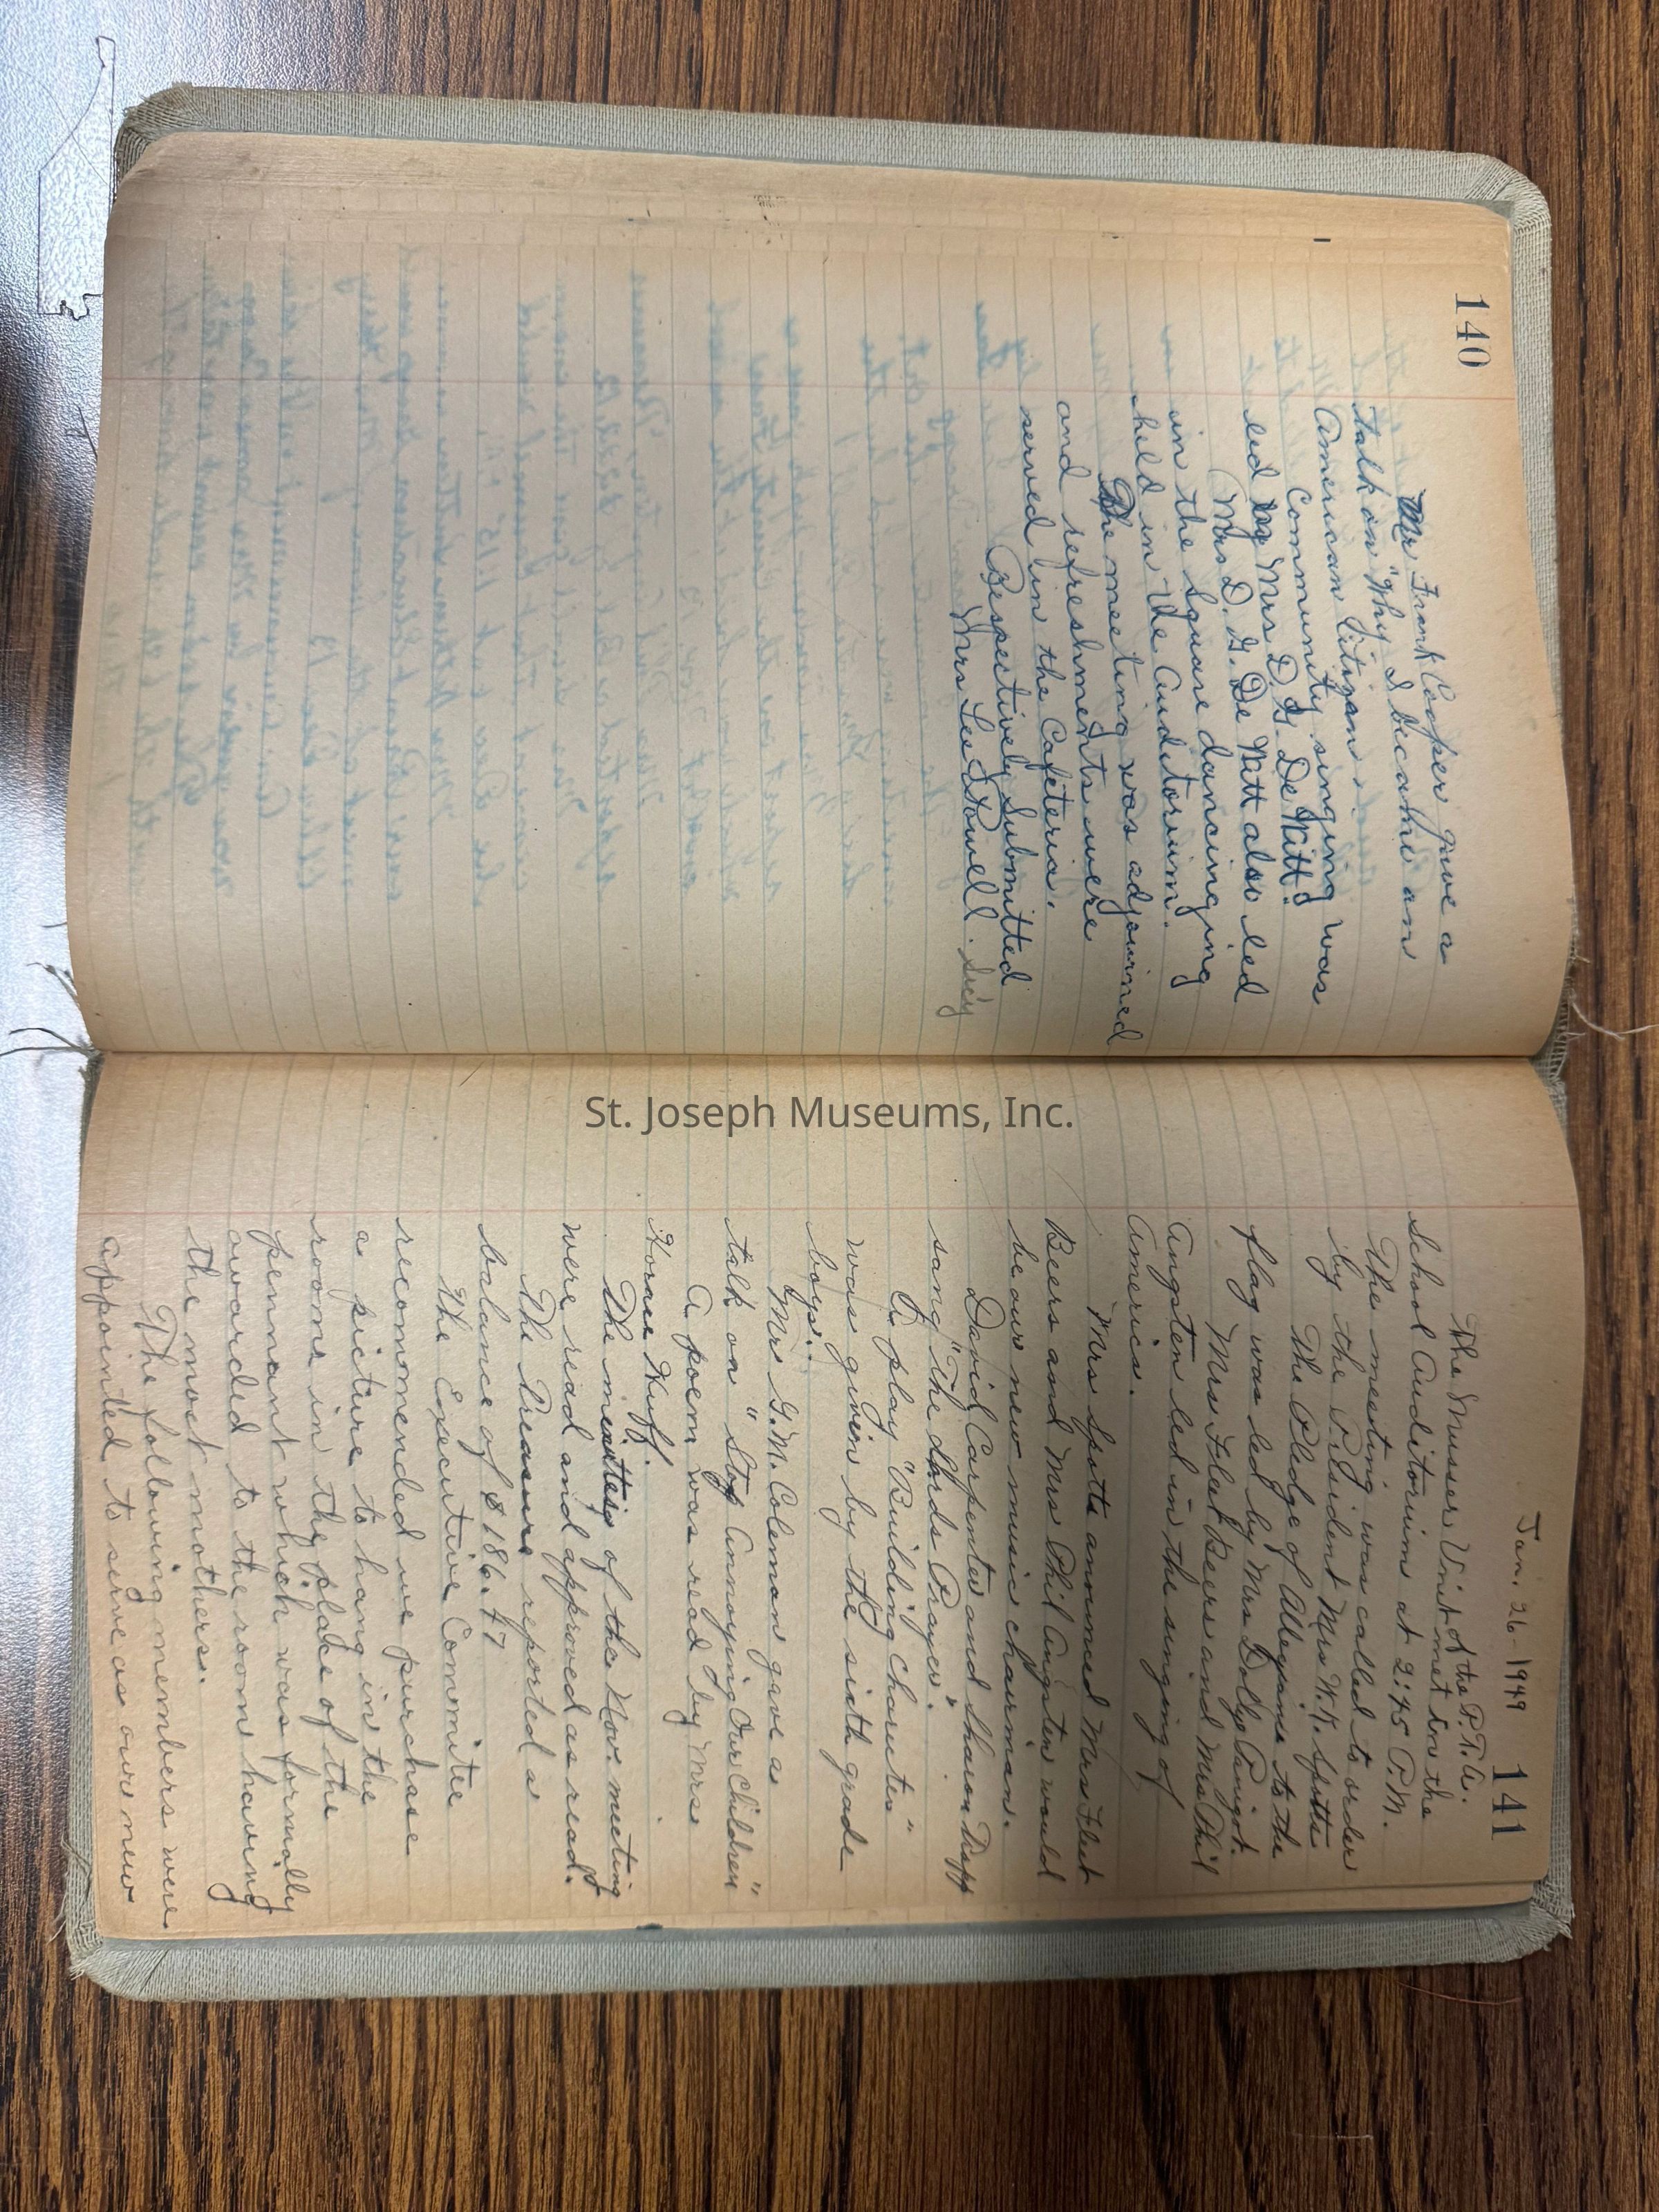 140
Mr Frank Cooper gave a
talk on "Why I became an
American Citizen".
Community singing was
led by Mrs D. G. De Witt.
Mrs D. G. De Witt also led
in the square dancing
held in the Auditorium.
The meeting was adjourned
and refreshments were
served in the Cafeteria.
Respectively Submitted
Mrs Leo Stowell. Sec'y
St. Joseph Museums, Inc.
141
Jan. 26-1949
The Musser Unit of the P.T.A.
met in the
School Auditorium at 2:45 P.M.
The meeting was called to order
by the President Mrs W. W. Spotts
The Pledge of Allegiance to the
flag was led by Mrs Dolly
Mrs Fleet Beers and Mrs Phil
Angsten led in the singing of
America.
Mrs Spotts announced Mrs Fleet
Beers and Mrs Phil Angsten would
be our new music chairman.
David Carpenter and Sharon
sang "The Lords Prayer".
A play "Building Charcter"
was given by the sixth grade
boys.
Mr G. M. Coleman gave a
talk on "Stop Annoying Our Children"
A poem was read by Mrs
Horace Huff.
The of the Nov. meeting
were read and approved as read.
The reported a
balance of $186.47
The Executive Committe
recommended we purchase
a picture to hang in the
rooms in the place of the
pennant which was formally
awarded to the room having
the most mothers.
The following members were
appointed to serve as our new